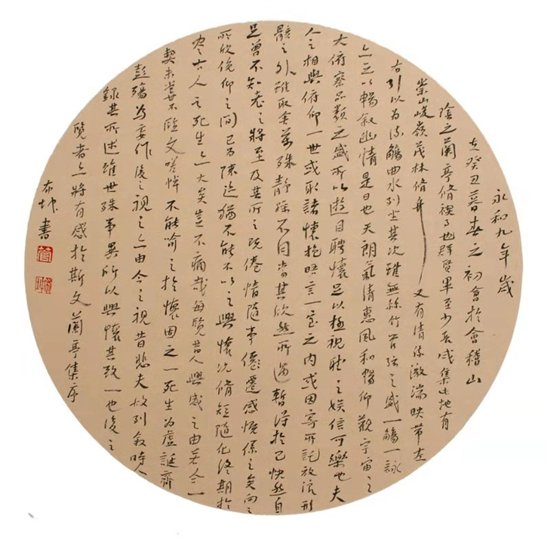 永和九年歲
在癸丑暮春之初會於會稽山
陰之蘭亭脩禊事也群賢畢至少長咸集此地有
崇山峻嶺茂林脩竹又有清流激湍映帶左
右引以為流觴曲水列坐其次雖無絲竹管弦之盛一觴一詠
亦足以暢敘幽情是日也天朗氣清惠風和暢仰觀宇宙之
大俯察品類之盛所以遊目騁懷足以極視聽之娛信可樂也夫
人之相與俯仰一世或取諸懷抱晤言一室之內或因寄所託放浪形
骸之外雖取舍萬殊靜躁不同當其欣然所遇暫得於己快然自
足曾不知老之將至及其所之既倦情隨事遷感慨係之矣向之
所欣俛仰之間已為陳迹猶不能不以之興懷況脩短隨化終期於
盡古人云死生亦大矣豈不痛哉每覽昔人興感之由若合一
契未嘗不臨文嗟悼不能喻之於懷固知一死生為虛誕齊
彭殤為妄作後之視今亦由今之視昔悲夫故列敘時人
錄其所述雖世殊事異所以興懷其致一也後之
覽者亦將有感於斯文蘭亭集序
書